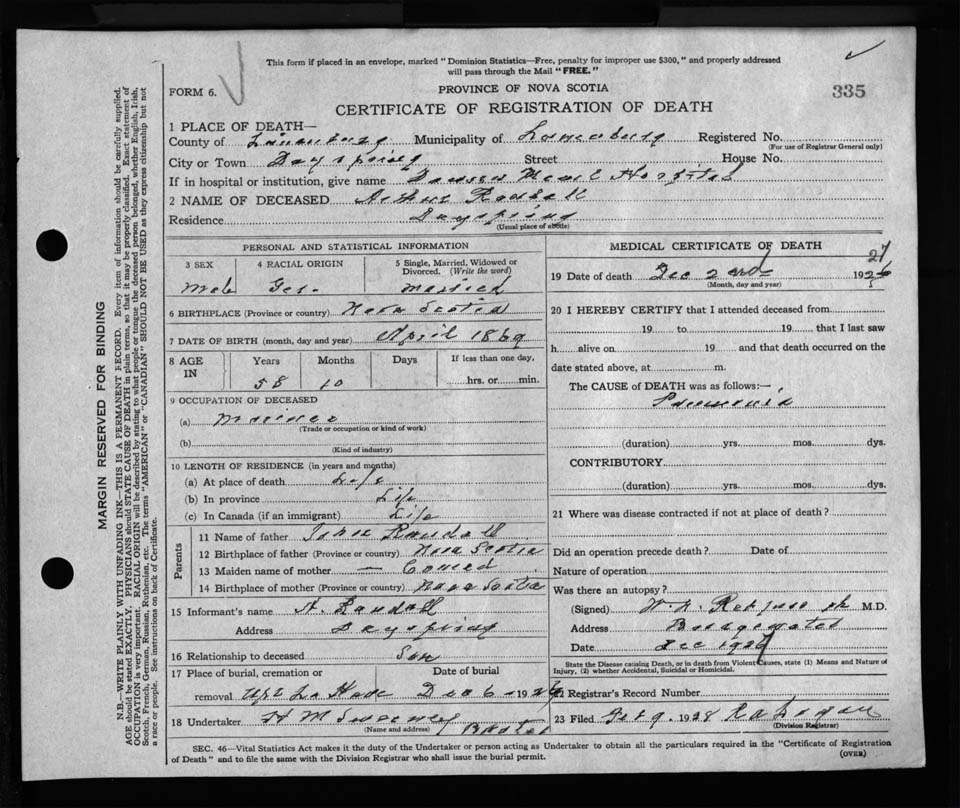 This form if placed in an envelope, marked "Dominion Statistics—Free, penalty for improper use $300," and properly addressed
will pass through the Mail "FREE."
FORM 6.
PROVINCE OF NOVA SCOTIA
335
CERTIFICATE OF REGISTRATION OF DEATH
1 PLACE OF DEATH—
County of Lunenburg Municipality of Lunenburg Registered No.
(For use of Registrar General only)
City or Town Dayspring Street House No.
If in hospital or institution, give name Dawson Hospital
2 NAME OF DECEASED Arthur Randall
Residence Dayspring
(Usual place of abode)
PERSONAL AND STATISTICAL INFORMATION
3 SEX 4 RACIAL ORIGIN 5 Single, Married, Widowed or Divorced. (Write the word)
Male Ger. Married
6 BIRTHPLACE (Province or country) Nova Scotia
7 DATE OF BIRTH (month, day and year) April 1869
8 AGE IN Years Months Days If less than one day,
58 10 hrs. or min.
9 OCCUPATION OF DECEASED
(a) Mariner
(Trade or occupation or kind of work)
(b)
(Kind of industry)
10 LENGTH OF RESIDENCE (in years and months)
(a) At place of death Life
(b) In province Life
(c) In Canada (if an immigrant) Life
Parents
11 Name of father Randall
12 Birthplace of father (Province or country) Nova Scotia
13 Maiden name of mother —
14 Birthplace of mother (Province or country) Nova Scotia
15 Informant's name A. Randall
Address Dayspring
16 Relationship to deceased Son
17 Place of burial, cremation or removal Date of burial
La Have Dec 6 - 192
18 Undertaker H M
(Name and address)
MEDICAL CERTIFICATE OF DEATH
27
19 Date of death Dec 2 192
(Month, day and year)
20 I HEREBY CERTIFY that I attended deceased from
19 to 19 that I last saw
h alive on 19 and that death occurred on the
date stated above, at m.
The CAUSE of DEATH was as follows:—
Pneumonia
(duration) yrs. mos. dys.
CONTRIBUTORY
(duration) yrs. mos. dys.
21 Where was disease contracted if not at place of death?
Did an operation precede death? Date of
Nature of operation
Was there an autopsy?
(Signed) W. M.D.
Address Bridgewater
Date Dec 192
State the Disease causing Death, or in death from Violent Causes, state (1) Means and Nature of
Injury, (2) whether Accidental, Suicidal or Homicidal.
22 Registrar's Record Number
23 Filed 9 1928
(Division Registrar)
SEC. 46—Vital Statistics Act makes it the duty of the Undertaker or person acting as Undertaker to obtain all the particulars required in the "Certificate of Registration
of Death" and to file the same with the Division Registrar who shall issue the burial permit.
(OVER)
MARGIN RESERVED FOR BINDING
N.B.—WRITE PLAINLY WITH UNFADING INK—THIS IS A PERMANENT RECORD. Every item of information should be carefully supplied.
AGE should be stated EXACTLY. PHYSICIANS should STATE CAUSE OF DEATH in plain terms, so that it may be properly classified. Exact statement of
OCCUPATION is very important. RACIAL ORIGIN will be described by stating to what people or tongue the deceased person belonged, whether English, Irish,
Scotch, French, German, Russian, Ruthenian, etc. The terms "AMERICAN" or "CANADIAN" SHOULD NOT BE USED as they express citizenship but not
a race or people. See instructions on back of Certificate.